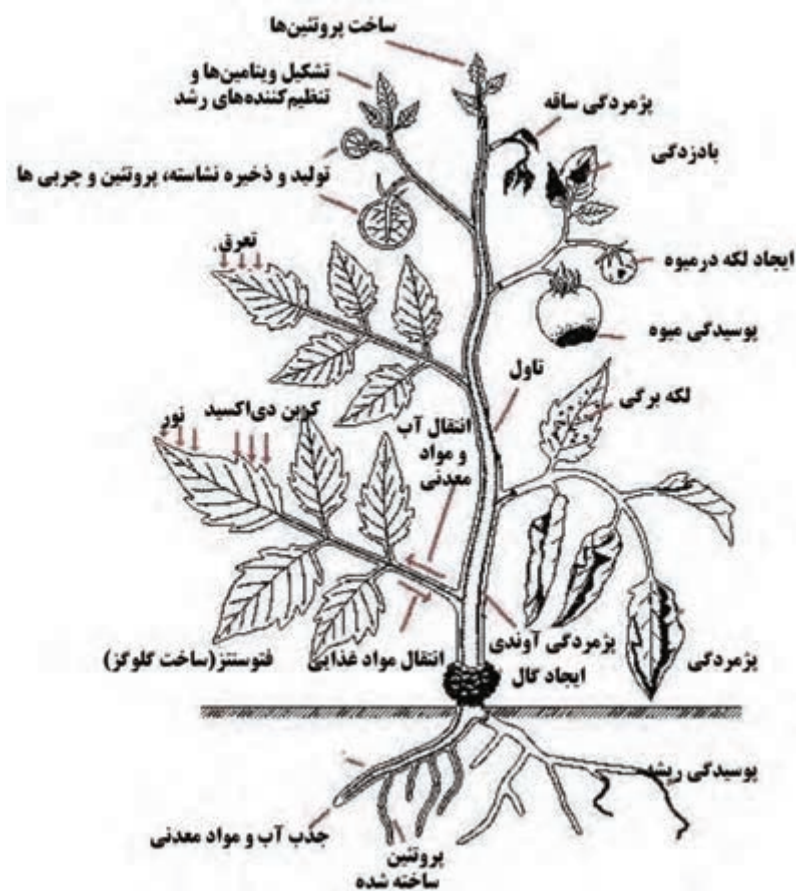 ساخت پروتئین‌ها
تشکیل ویتامین‌ها و
تنظیم‌کننده‌های رشد
پژمردگی ساقه
بادزدگی
تولید و ذخیره نشاسته، پروتئین و چربی ها
تعرق
ایجاد لکه درمیوه
پوسیدگی میوه
تاول
لکه برگی
نور
کربن دی‌اکسید
انتقال آب
و مواد
معدنی
فتوسنتز(ساخت گلوگز)
انتقال مواد غذایی
پژمردگی آوندی
ایجاد گال
پژمردگی
پوسیدگی ریشه
جذب آب و مواد معدنی
پروتئین
ساخته شده